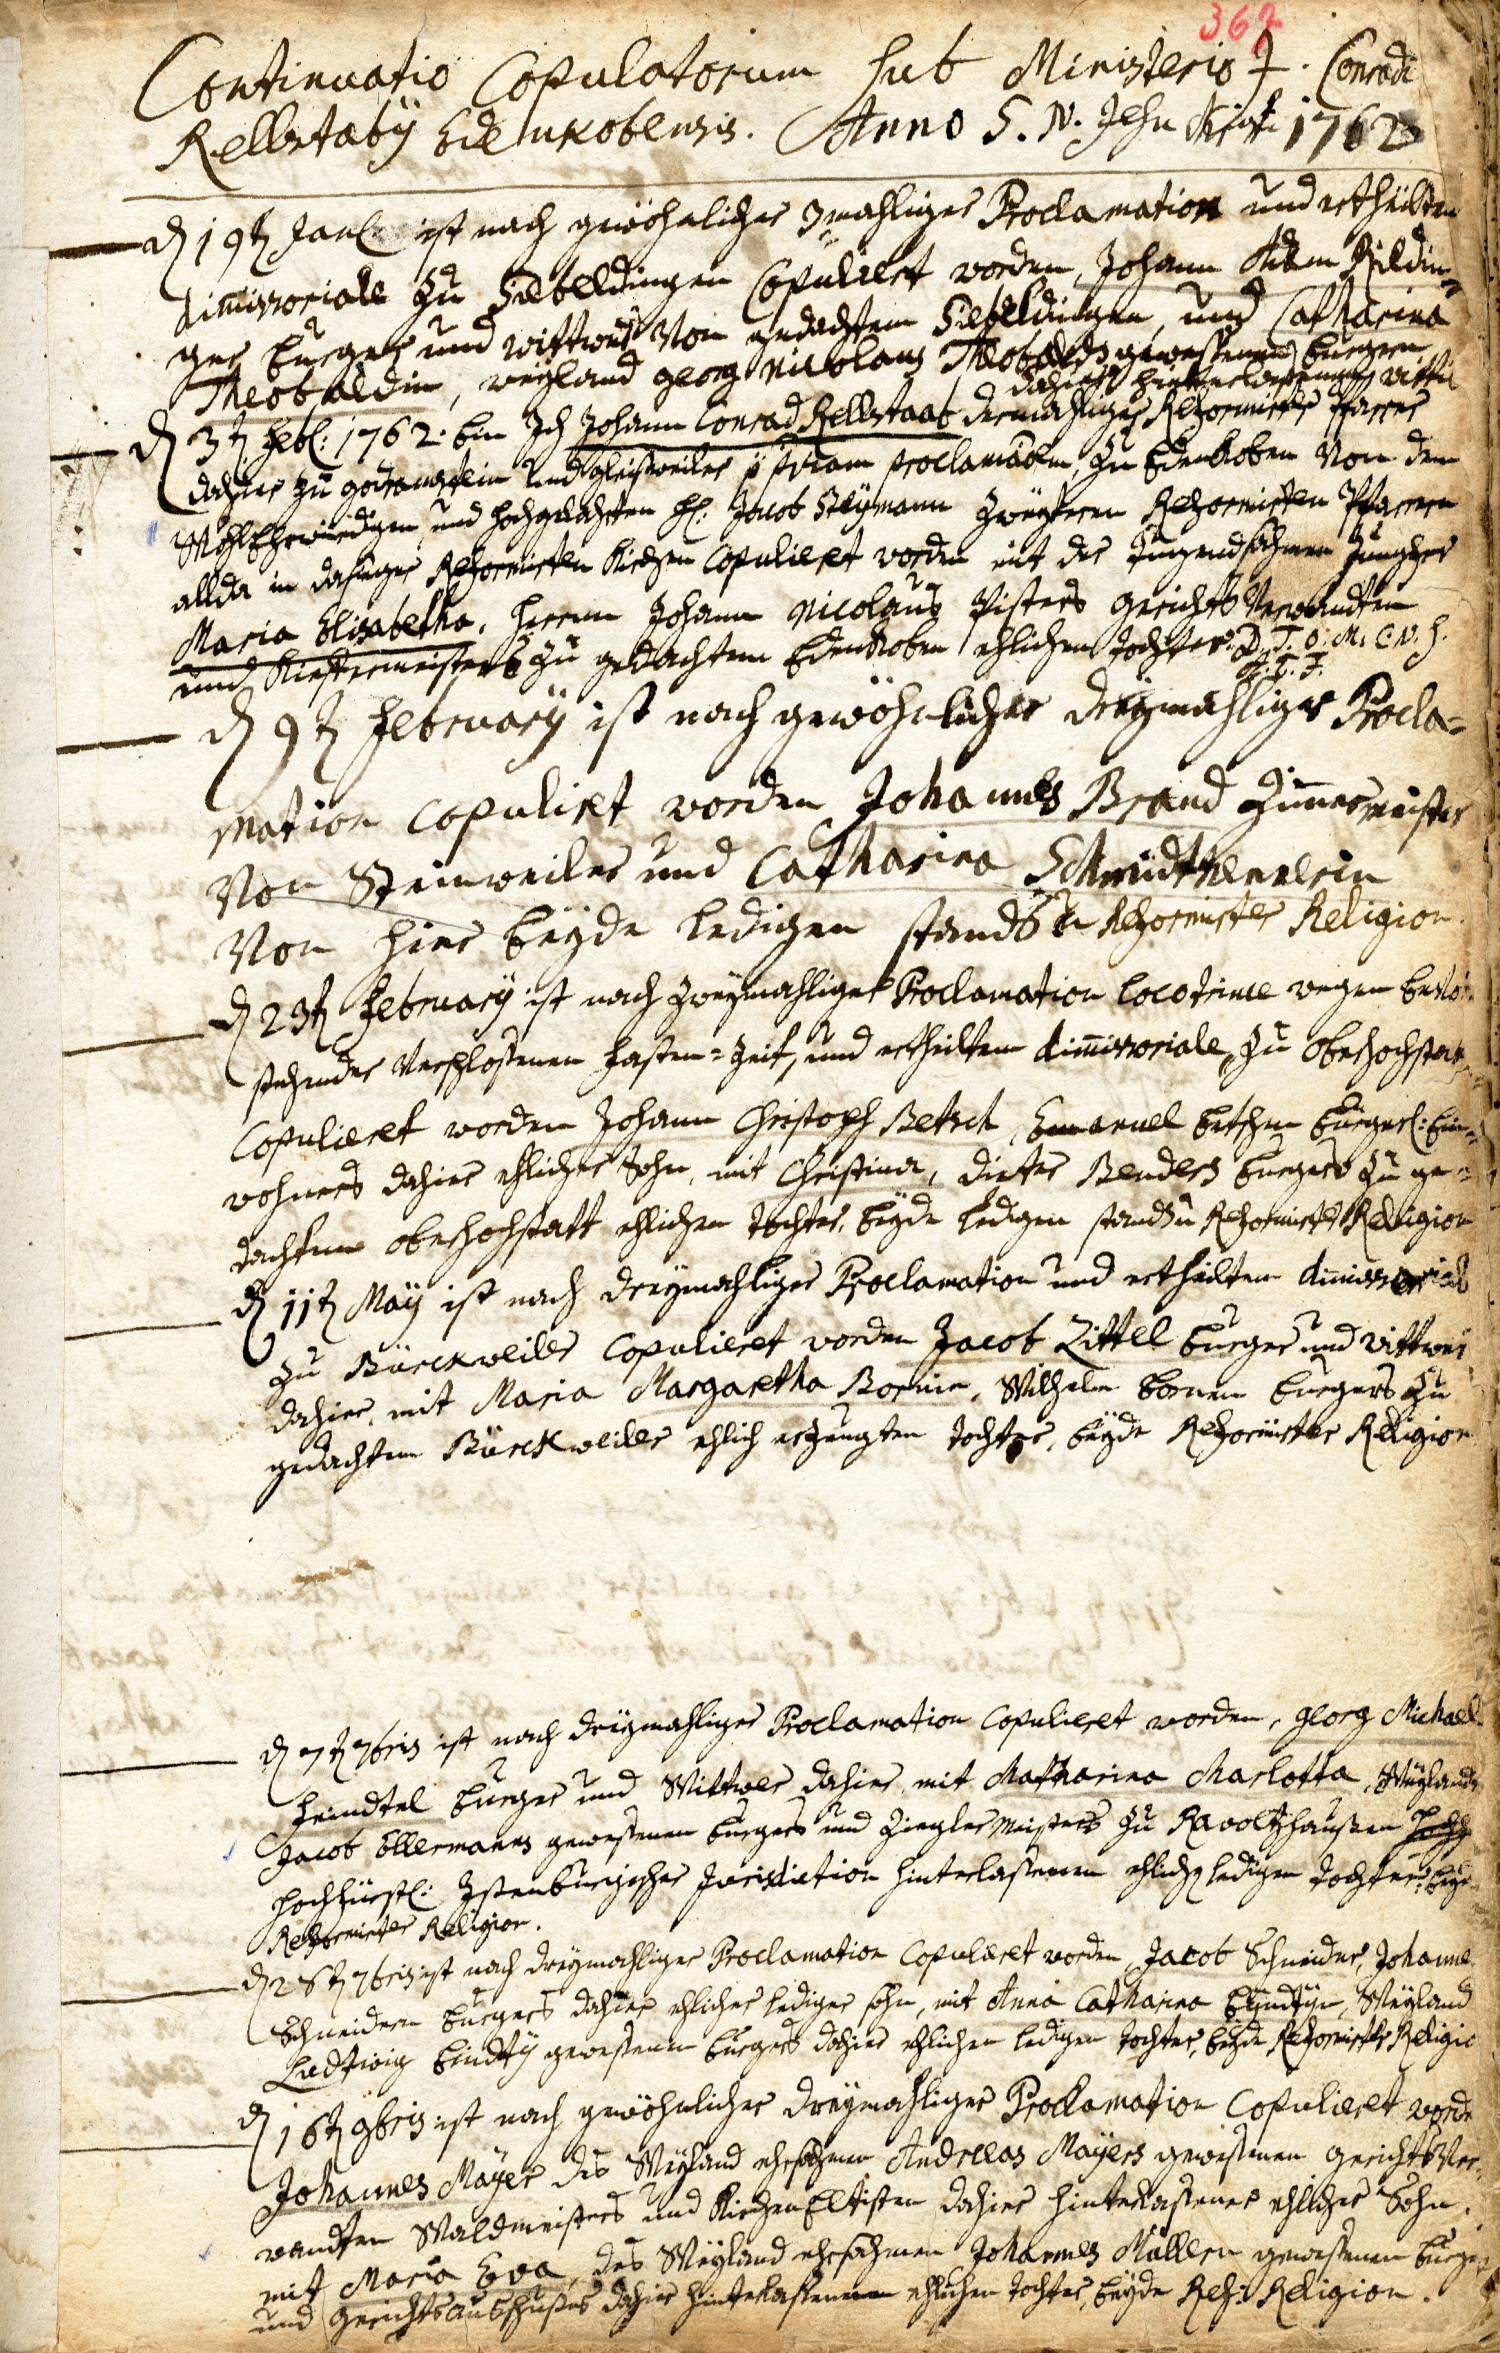 367
Continuatio Copulatorum sub Ministerio J. Conradi
Rellstaby Edenkobensis. Anno S. N. Jesu Christi 1762
d 19t Jan: ist nach gewöhnlicher 3mahliger Proclamation und ertheilten
dimissoriale zu Siebeldingen Copuliert worden, Johann Adam
ger burger und wittwer Von gedachtem Siebeldingen, und Catharina
Theobaldin, weyland georg Nicolaus Theobalds gewessenen burgern
dahier hinterlassenen wittib
d 3t Feb: 1762. bin Ich Johann Conrad Rellstaab dermahliger Reformirter Pfarrer
dahier zu godramstein und gleisweiler proclamâôem, zu Edenkoben Von dem
WohlEhrwürdigen und hochgelahrten H: Jacob Steymann zweyteren Reformirten Pfarrern
allda in dasiger Reformirten Kirchen Copuliert worden mit der Tugendsahmen Jungfer
Maria Elisabetha, Herrn Johann Nicolaus Pisters gerichts Verwandten
und Kieffermeisters zu gedachtem Edenkoben ehlichen Tochter. D. T. O. M. C. N. H.
d 9t February ist nach gewöhnlicher dreymahliger Procla=
mation Copuliert worden Johannes Brand Zimmermeister
Von Steinweiler und Catharina
Von hier beyde ledigen stands u Reformirter Religion.
d 23t February ist nach zweymahliger Proclamation loco trinae wegen bevor
stehender Verschlossenen fasten=zeit, und ertheiltem dimissoriale, zu oberhochstatt
Copulieret worden Johann Christoph Betsch, Emanuel betschen burgerl: Ein=
wohners dahier ehlicher Sohn, mit Christina, dieter Benders burgers zu ge=
dachtem oberhochstatt ehlichen tochter, beyde ledigen stands u Reformirter Religion
d 11t May ist nach dreymahliger Proclamation und ertheilten dimissoriale
zu Bürckweiler Copulieret worden Jacob Zittel burger und wittwer
dahier, mit Maria Margaretha Bornin, Wilhelm bornen burgers zu
gedachtem Bürckweiler ehlich erzeugten tochter, beyde Reformirter Religion
d 7t 7bris ist nach dreymahliger Proclamation Copulieret worden, georg Michael
Heindtel burger und Wittwer dahier, mit Catharina Charlotta, Weylands
Jacob Ellermanns gewessenen burgers und Ziegler Meisters zu Ravoltzhaussen
hochfürstl: Isenburgischer Jurisdiction hinterlassenen ehlich ledigen tochter, beyde
Reformirter Religion.
d 28t 7bris ist nach dreymahliger Proclamation Copulieret worden, Jacob Schneider, Johanne
Schneidern burgers dahier ehlicher lediger sohn, mit Anna Catharina Eyndtyn, Weyland
Ludwig Eindty gewessenen burgers dahier ehlichen ledigen tochter, beyde Reformirter Religio
d 16t 9bris ist nach gewöhnlicher dreymahliger Proclamation Copulieret worde
Johannes Mayer des Weyland ehrsahmen Andreas Mayers gewessenen gerichts Ver=
wandten Waldmeisters und Kirchen Eltisten dahier hinterlassener ehlicher Sohn,
mit Maria Eva, des Weyland ehrsahmen Johannes Müllern gewessenen burge
und gerichts ausschusses dahier hinterlassenen ehlichen tochter, beyde Ref: Religion.